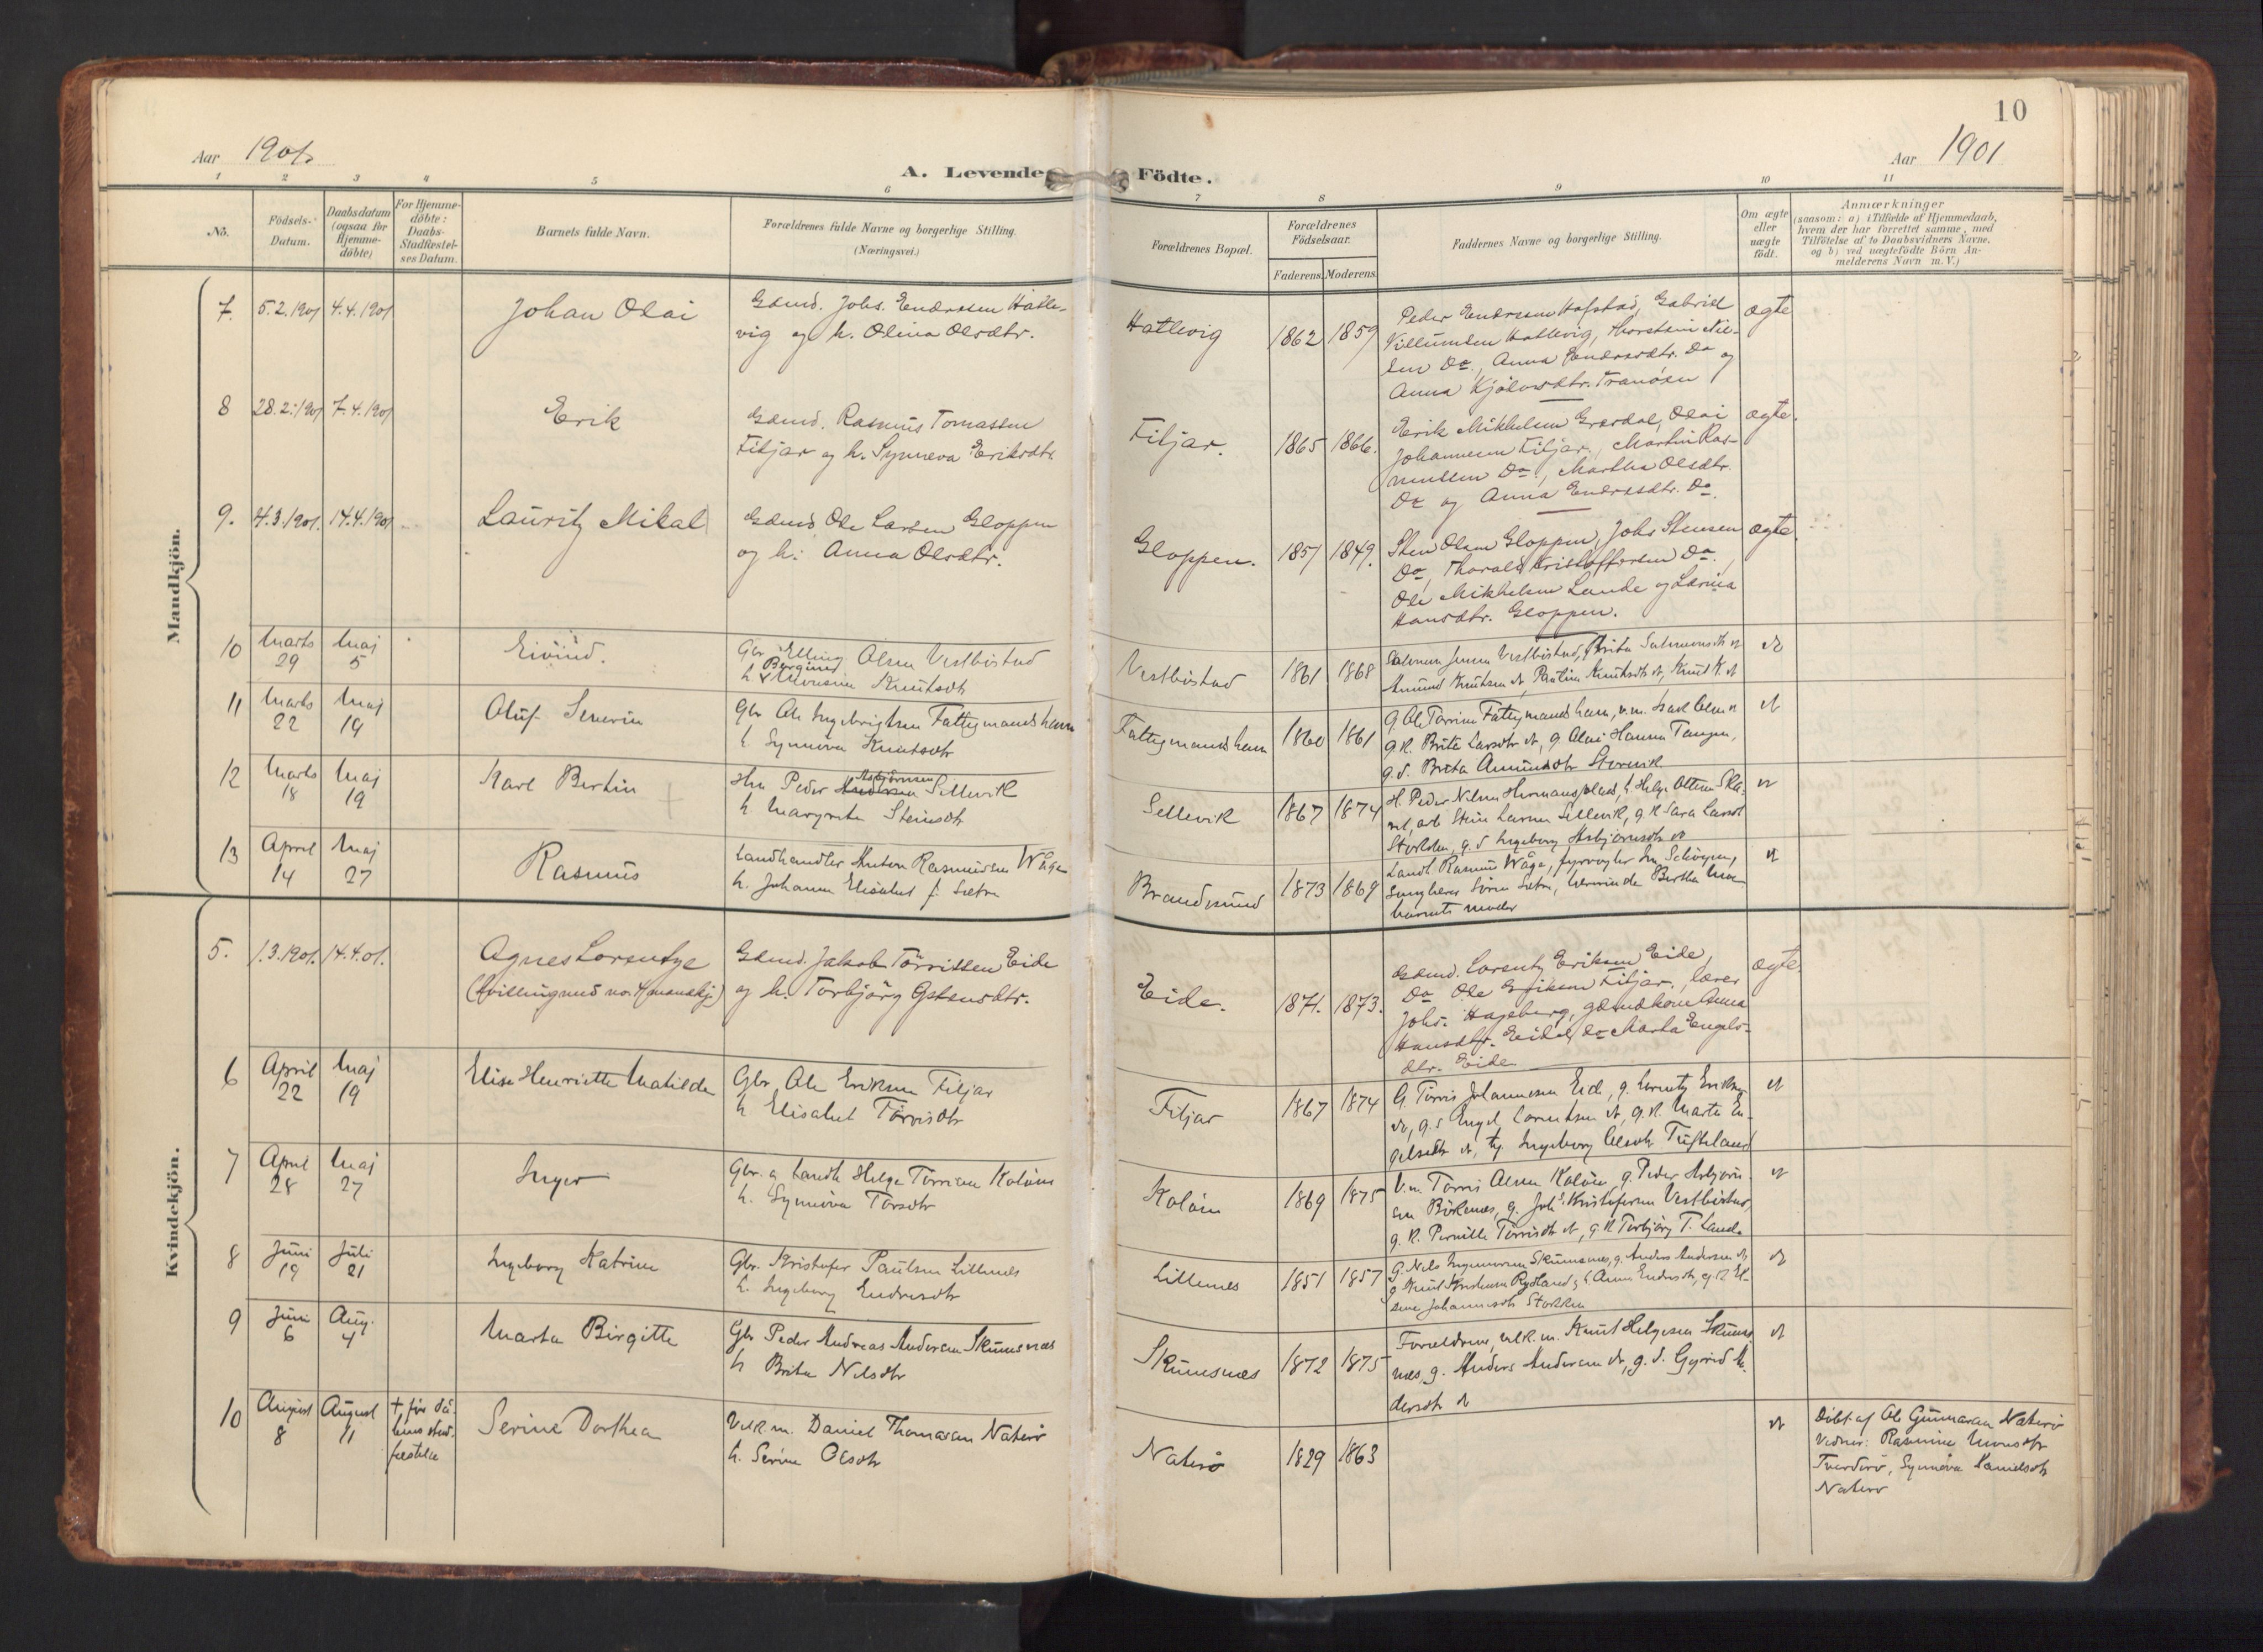 10
Aar 1901.
A. Levende Födte.
Aar 1901
1 2 3 4 5 6 7 8 9 10 11
No.
Födsels-Datum.
Daabsdatum (ogsaa for Hjemmedöbte)
For Hjemmedöbte: Daabs-Stadfæstelses Datum.
Barnets fulde Navn.
Forældrenes fulde Navne og borgerlige Stilling. (Næringsvei.)
Forældrenes Bopæl.
Forældrenes Födselsaar.
Faderens. Moderens.
Faddernes Navne og borgerlige Stilling.
Om ægte eller uægte födt.
Anmærkninger
(saasom: a) i Tilfælde af Hjemmedaab,
hvem der har forrettet samme, med
Tilföielse af to Daabsvidners Navne.
og b) ved uægtefödte Börn An-
melderens Navn m. V.)
Mandkjön.
7. 5.2.1901 4.4.1901 Johan Olai
Gamd. Johs. Endressen Hatle-
vig og h. Olina Olsdtr.
Hatlevig 1862 1859
Peder Endressen Hofstad, Gabriel
Villumsen Hatlevig, Thorstein Niel-
sen Do, Anna Endresdtr. Do og
Anna Kjölavsdtr. Tranösen
ægte
8 28.2.1901 7.4.1901 Erik
Gamd. Rasmus Tomassen
Fitjar og h. Synneva Eriksdtr.
Fitjar. 1865 1866.
Erik Mikkelsen Grardal, Olai
Johannesen Fitjar, Martin Ras-
mussen Do, Martha Olsdtr.
Do og Anna Endresdtr. Do.
ægte.
9. 4.3.1901. 14.4.1901 Lauritz Mikal
Gamd. Ole Larsen Gloppen
og h. Anna Olsdtr.
Gloppen. 1857 1849.
Sten Olsen Gloppen, Johs Stensen
Do, Thorald Kristoffersen Do,
Ole Mikkelsen Lande og Larina
Hansdtr. Gloppen.
ægte.
10 Marts 29 Maj 5 Eivind.
Gbr Elling Olsen Vestböstad
h. Bergined Monsine Knutsdtr
Vestböstad 1861 1868
Salomon Jensen Vestböstad, Brita Salomonsdtr dt
Amund Knutsen dt, Pauline Knutsdtr dt, Knud K. dt
dt
11 Marts 22 Maj 19 Oluf Severin
Gbr Ole Ingebrigtsen Fattigmandshavn
h. Synneva Knutsdtr
Fattigmandshavn 1860 1861
G. Ole Torrisen Fattigmandshavn, u.m. Isak Olsen dt
g.k. Brita Larsdtr dt, g. Olai Hansen Tangen,
g.d. Brita Amundsdtr Storevik
dt
12 Marts 18 Maj 19 Karl Bertin
Hm Peder Asbjörnsen Sellevik
h. Margreta Steinsdtr
Sellevik 1867 1874
H. Peder Nilsen Hermansplads, h Helge Ottesen Ska-
tvet, arb Stein Larsen Sellevik, g.k. Sara Larsdt
g.d. Ingeborg Asbjörnsdtr dt
dt
13 April 14 Maj 27 Rasmus
Landhandler Anton Rasmussen Våge
h. Johanna Elisabet f. Sætre
Brandesund 1873 1869
Landh. Rasmus Våge, fyrvogter
Sören Sætre, Bertha
barnets moder
dt
Kvindekjön.
5. 1.3.1901. 14.4.01. Agnes Lorentze
(tvilling med no. 4 mandkj.)
Gamd. Jakob Törrissen Eide
og h. Torbjörg Gstensdtr.
Eide. 1871. 1873.
Gamd. Lorentz Eriksen Eide,
Do Ole Eriksen Fitjar, lærer
Johs. Hageberg, gamdkone Anna
Hansdtr. Eide, Do Marta Engels-
dtr. Eide
ægte.
6 April 22 Maj 19 Elise Henriette Matilde
Gbr. Ole Eriksen Fitjar
h Elisabet Törrisdtr
Fitjar 1867 1874
G. Törris Johannesen Eid, g. Lorentz Eriksen
dt, g.s Engel Lorentsen dt, g.k. Marta En-
gelsdtr dt, tj. Ingeborg Olsdtr Tufteland
dt
7 April 28 Maj 27 Inger
Gbr. og Landh Helge Törrisen Kolöen
h. Synnöva Torsdtr
Kolöen 1869 1875
U.m. Törris Olsen Kolöen, g. Peder Asbjörn-
sen Börkenes, g. Johs. Kristofersen Vestböstad,
g.k. Pernille Törrisdtr dt, g.k Torbjörg T. Landa
dt
8 Juni 19 Juli 21 Ingeborg Katrine
Gbr. Kristofer Paulsen Lillenes
h. Ingeborg Endresdtr
Lillenes 1851 1857
G. Nils Ingemarsen Skumsnes, g. Anders Andersen dt,
g Knut Kristensen Rydland, h Anne Endresdtr, g.k El-
Johannesdtr Stokken
dt
9 Juni 6 Aug. 4 Marta Birgitte
Gbr Peder Andreas Andersen Skumsnæs
h Brita Nilsdtr
Skumsnes 1872 1875
Forældrene, u.k.m. Knut Helgesen Skums-
næs, g. Anders Andersen dt, g.d. Gyrid An-
dersdtr dt
dt
10 August 8 August 11
+ för då-
bens stad-
fæstelse
Serine Dorthea
U.k.m. Daniel Thomassen Naterö
h. Serine Olsdtr
Naterö 1829 1863
dt
Döbt af Ole Gunnarsen Naterö
Vidner: Rasmine Monsdtr
Tverderö, Synnöva Danielsdtr
Naterö